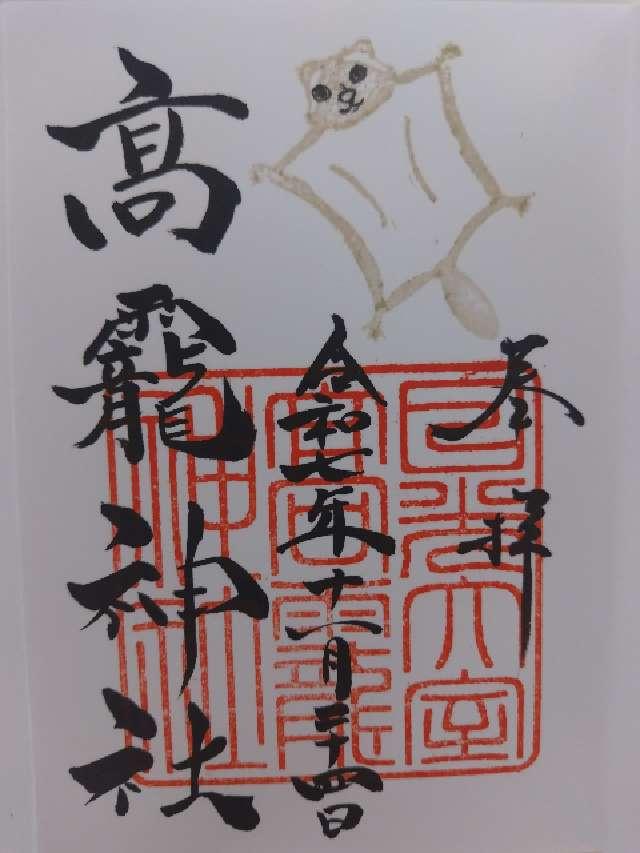 奉拝
令和七年十一月二十四日
高龗神社
日光大室
高龗
神社